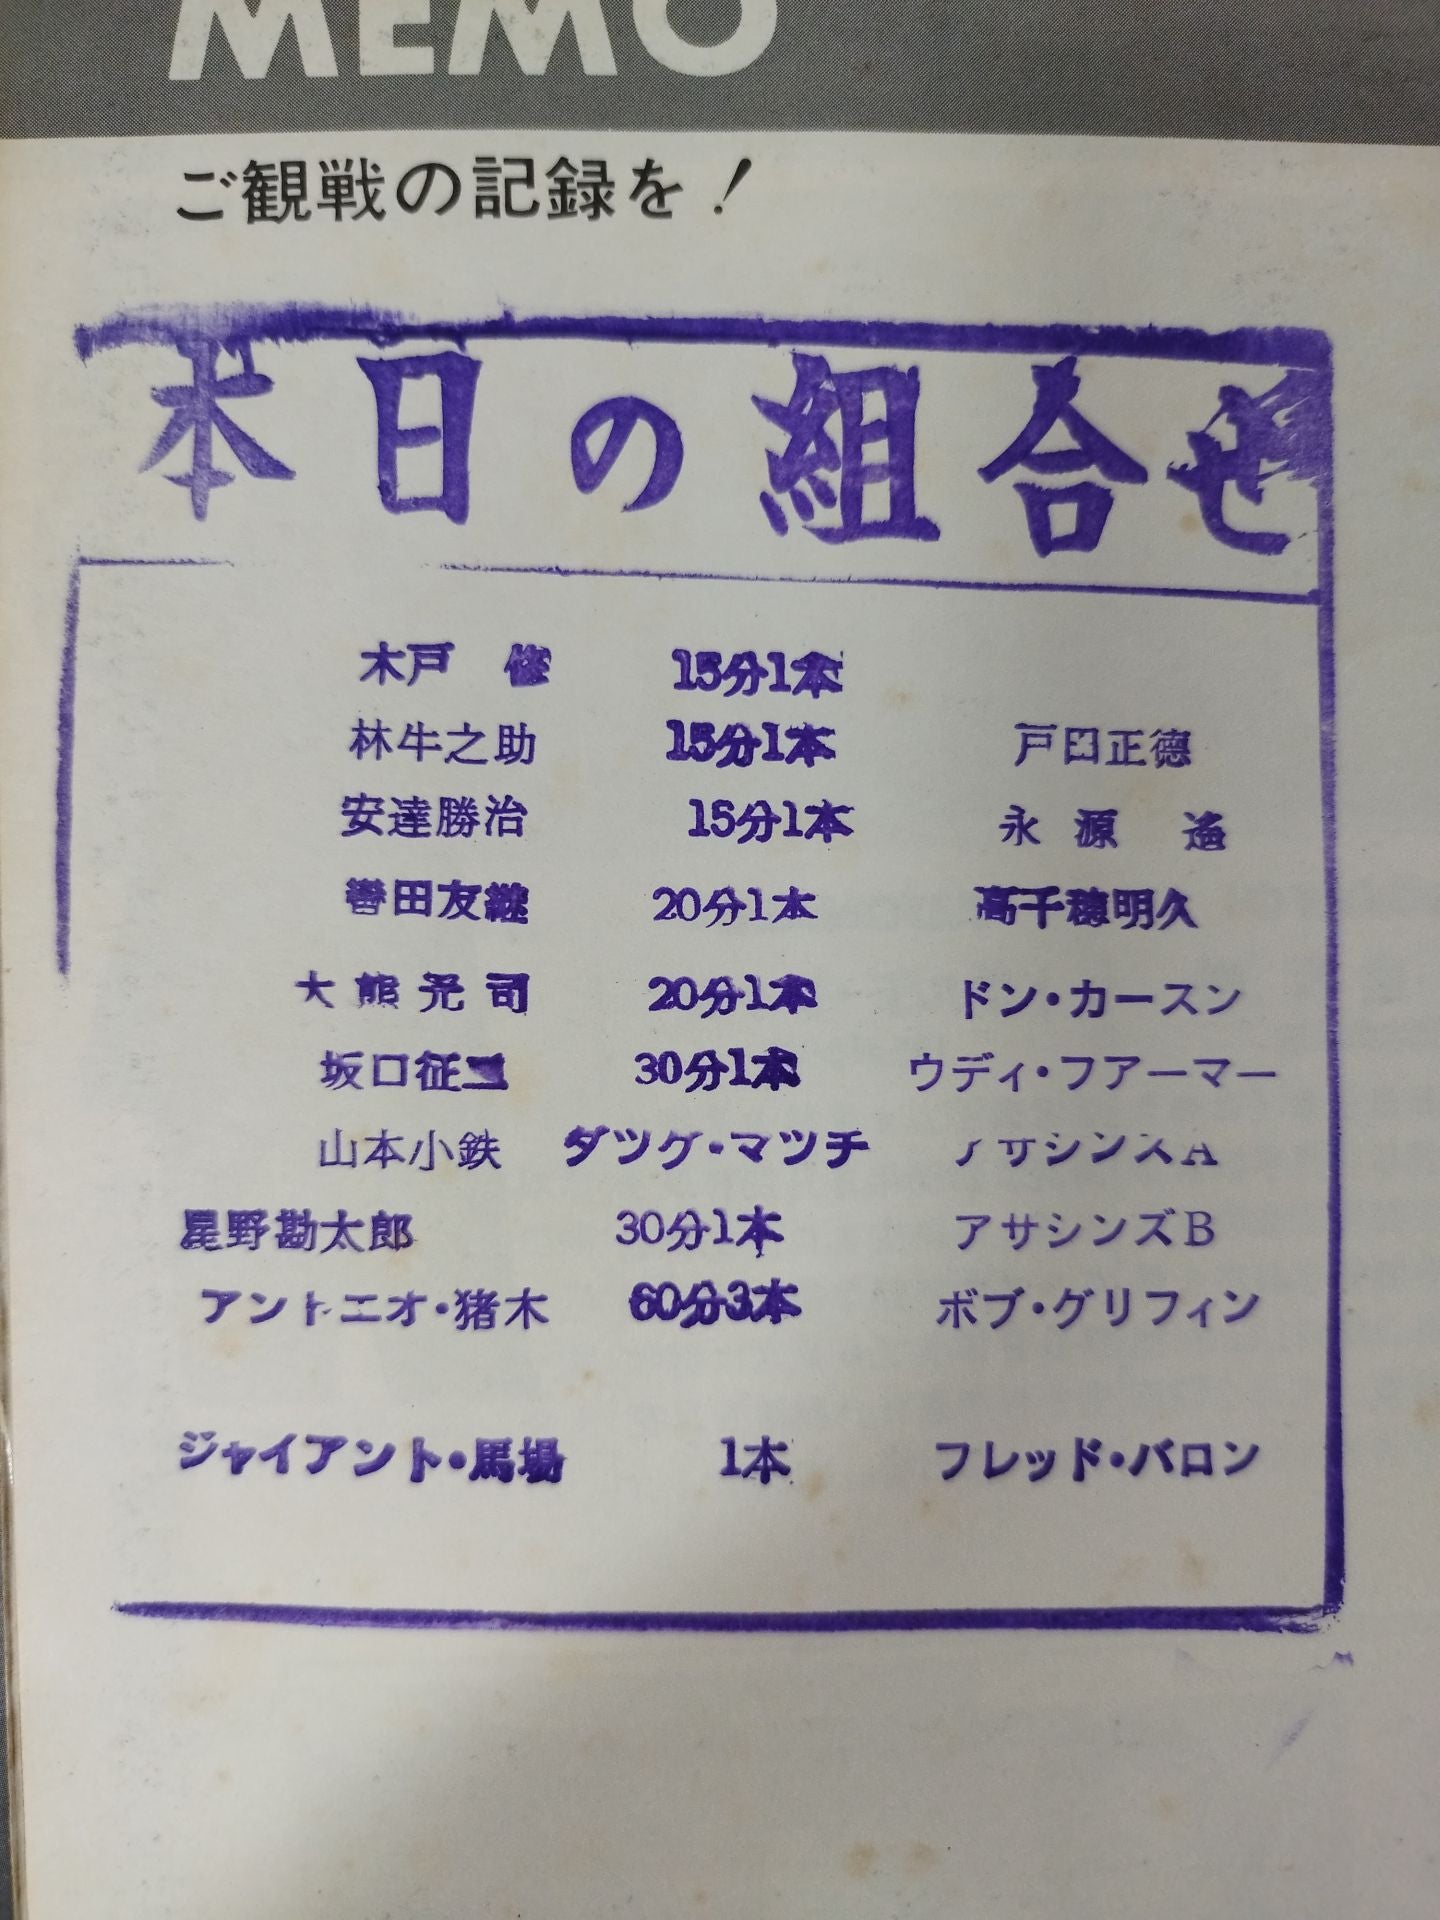 MEMO
ご観戦の記録を!
本日の組合せ
木戸 修 15分1本
林牛之助 15分1本 戸田正徳
安達勝治 15分1本 永源 遙
轡田友継 20分1本 高千穂明久
大熊元司 20分1本 ドン・カースン
坂口征二 30分1本 ウディ・フアーマー
山本小鉄 タツグ・マツチ アサシンズA
星野勘太郎 30分1本 アサシンズB
アントニオ・猪木 60分3本 ボブ・グリフィン
ジャイアント・馬場 1本 フレッド・バロン